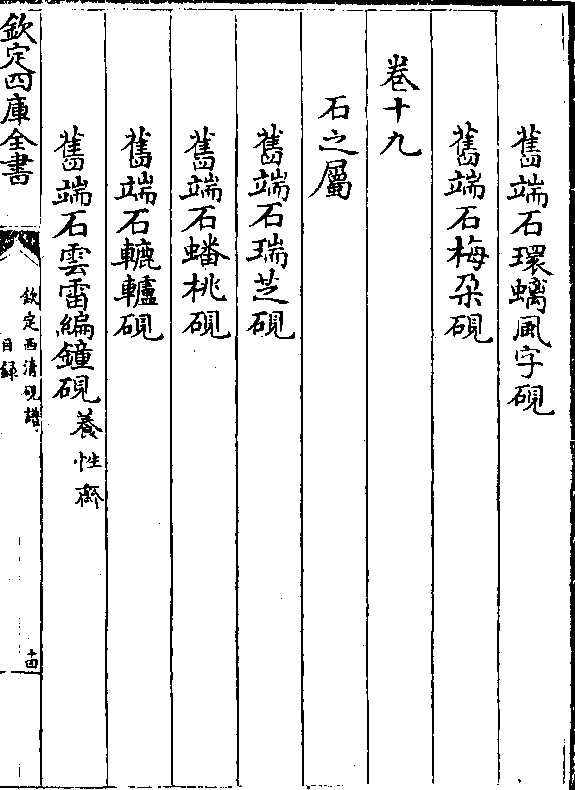 舊端石環螭風字硯
舊端石梅朶硯
卷十九
石之屬
舊端石瑞芝硯
舊端石蟠桃硯
舊端石轆轤硯
舊端石雲雷編鐘硯 養性齋
欽定四庫全書
欽定西清硯譜
目錄
十四